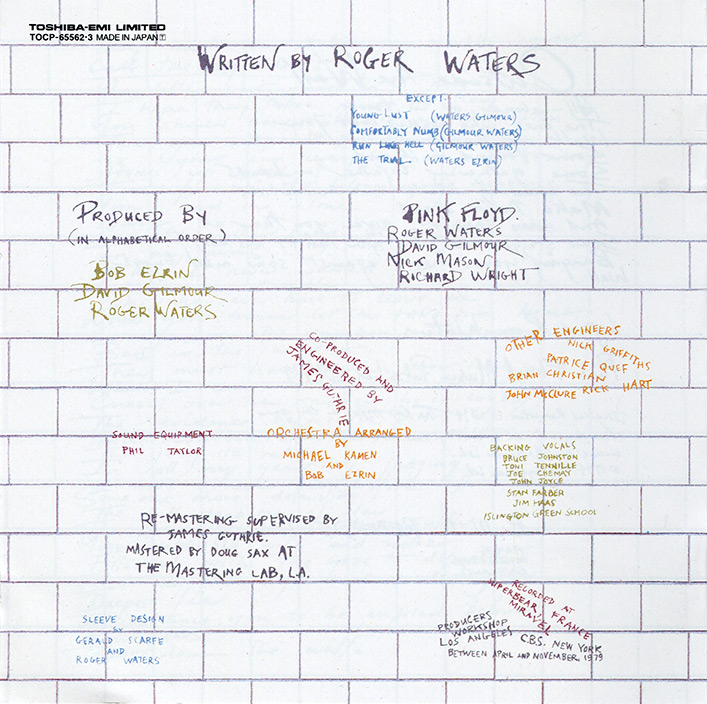 TOSHIBA-EMI LIMITED
TOCP-65562·3 MADE IN JAPAN
WRITTEN BY ROGER WATERS
EXCEPT.
YOUNG LUST (WATERS GILMOUR)
COMFORTABLY NUMB (GILMOUR WATERS)
RUN LIKE HELL (GILMOUR WATERS)
THE TRIAL (WATERS EZRIN)
PRODUCED BY
(IN ALPHABETICAL ORDER)
BOB EZRIN
DAVID GILMOUR
ROGER WATERS
PINK FLOYD.
ROGER WATERS
DAVID GILMOUR
NICK MASON
RICHARD WRIGHT
CO-PRODUCED AND
ENGINEERED BY
JAMES GUTHRIE
OTHER ENGINEERS
NICK GRIFFITHS
PATRICE QUEF
BRIAN CHRISTIAN
RICK HART
JOHN McCLURE
SOUND EQUIPMENT
PHIL TAYLOR
ORCHESTRA ARRANGED
BY
MICHAEL KAMEN
AND
BOB EZRIN
BACKING VOCALS
BRUCE JOHNSTON
TONI TENNILLE
JOE CHEMAY
JOHN JOYLE
STAN FARBER
JIM HAAS
ISLINGTON GREEN SCHOOL
RE-MASTERING SUPERVISED BY
JAMES GUTHRIE.
MASTERED BY DOUG SAX AT
THE MASTERING LAB, L.A.
SLEEVE DESIGN
BY
GERALD SCARFE
AND
ROGER WATERS
RECORDED AT
SUPERBEAR, FRANCE
MIRAVEL
PRODUCERS
WORKSHOP
LOS ANGELES
C.B.S. NEW YORK
BETWEEN APRIL AND NOVEMBER, 1979